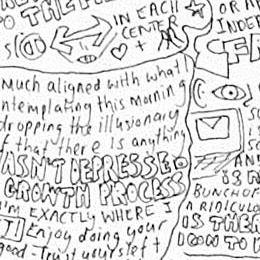 THE
IN EACH
CENTER
OR A
INDE
much aligned with what
ntemplating this morning
dropping the illusionary
f that there is anything
ASN'T DEPRESSED
GROWTH PROCESS
I'M EXACTLY WHERE I
Enjoy doing your
good - Trust yourself +
AND
IS N
BUNCH OF
A RIDICULO
IS THER